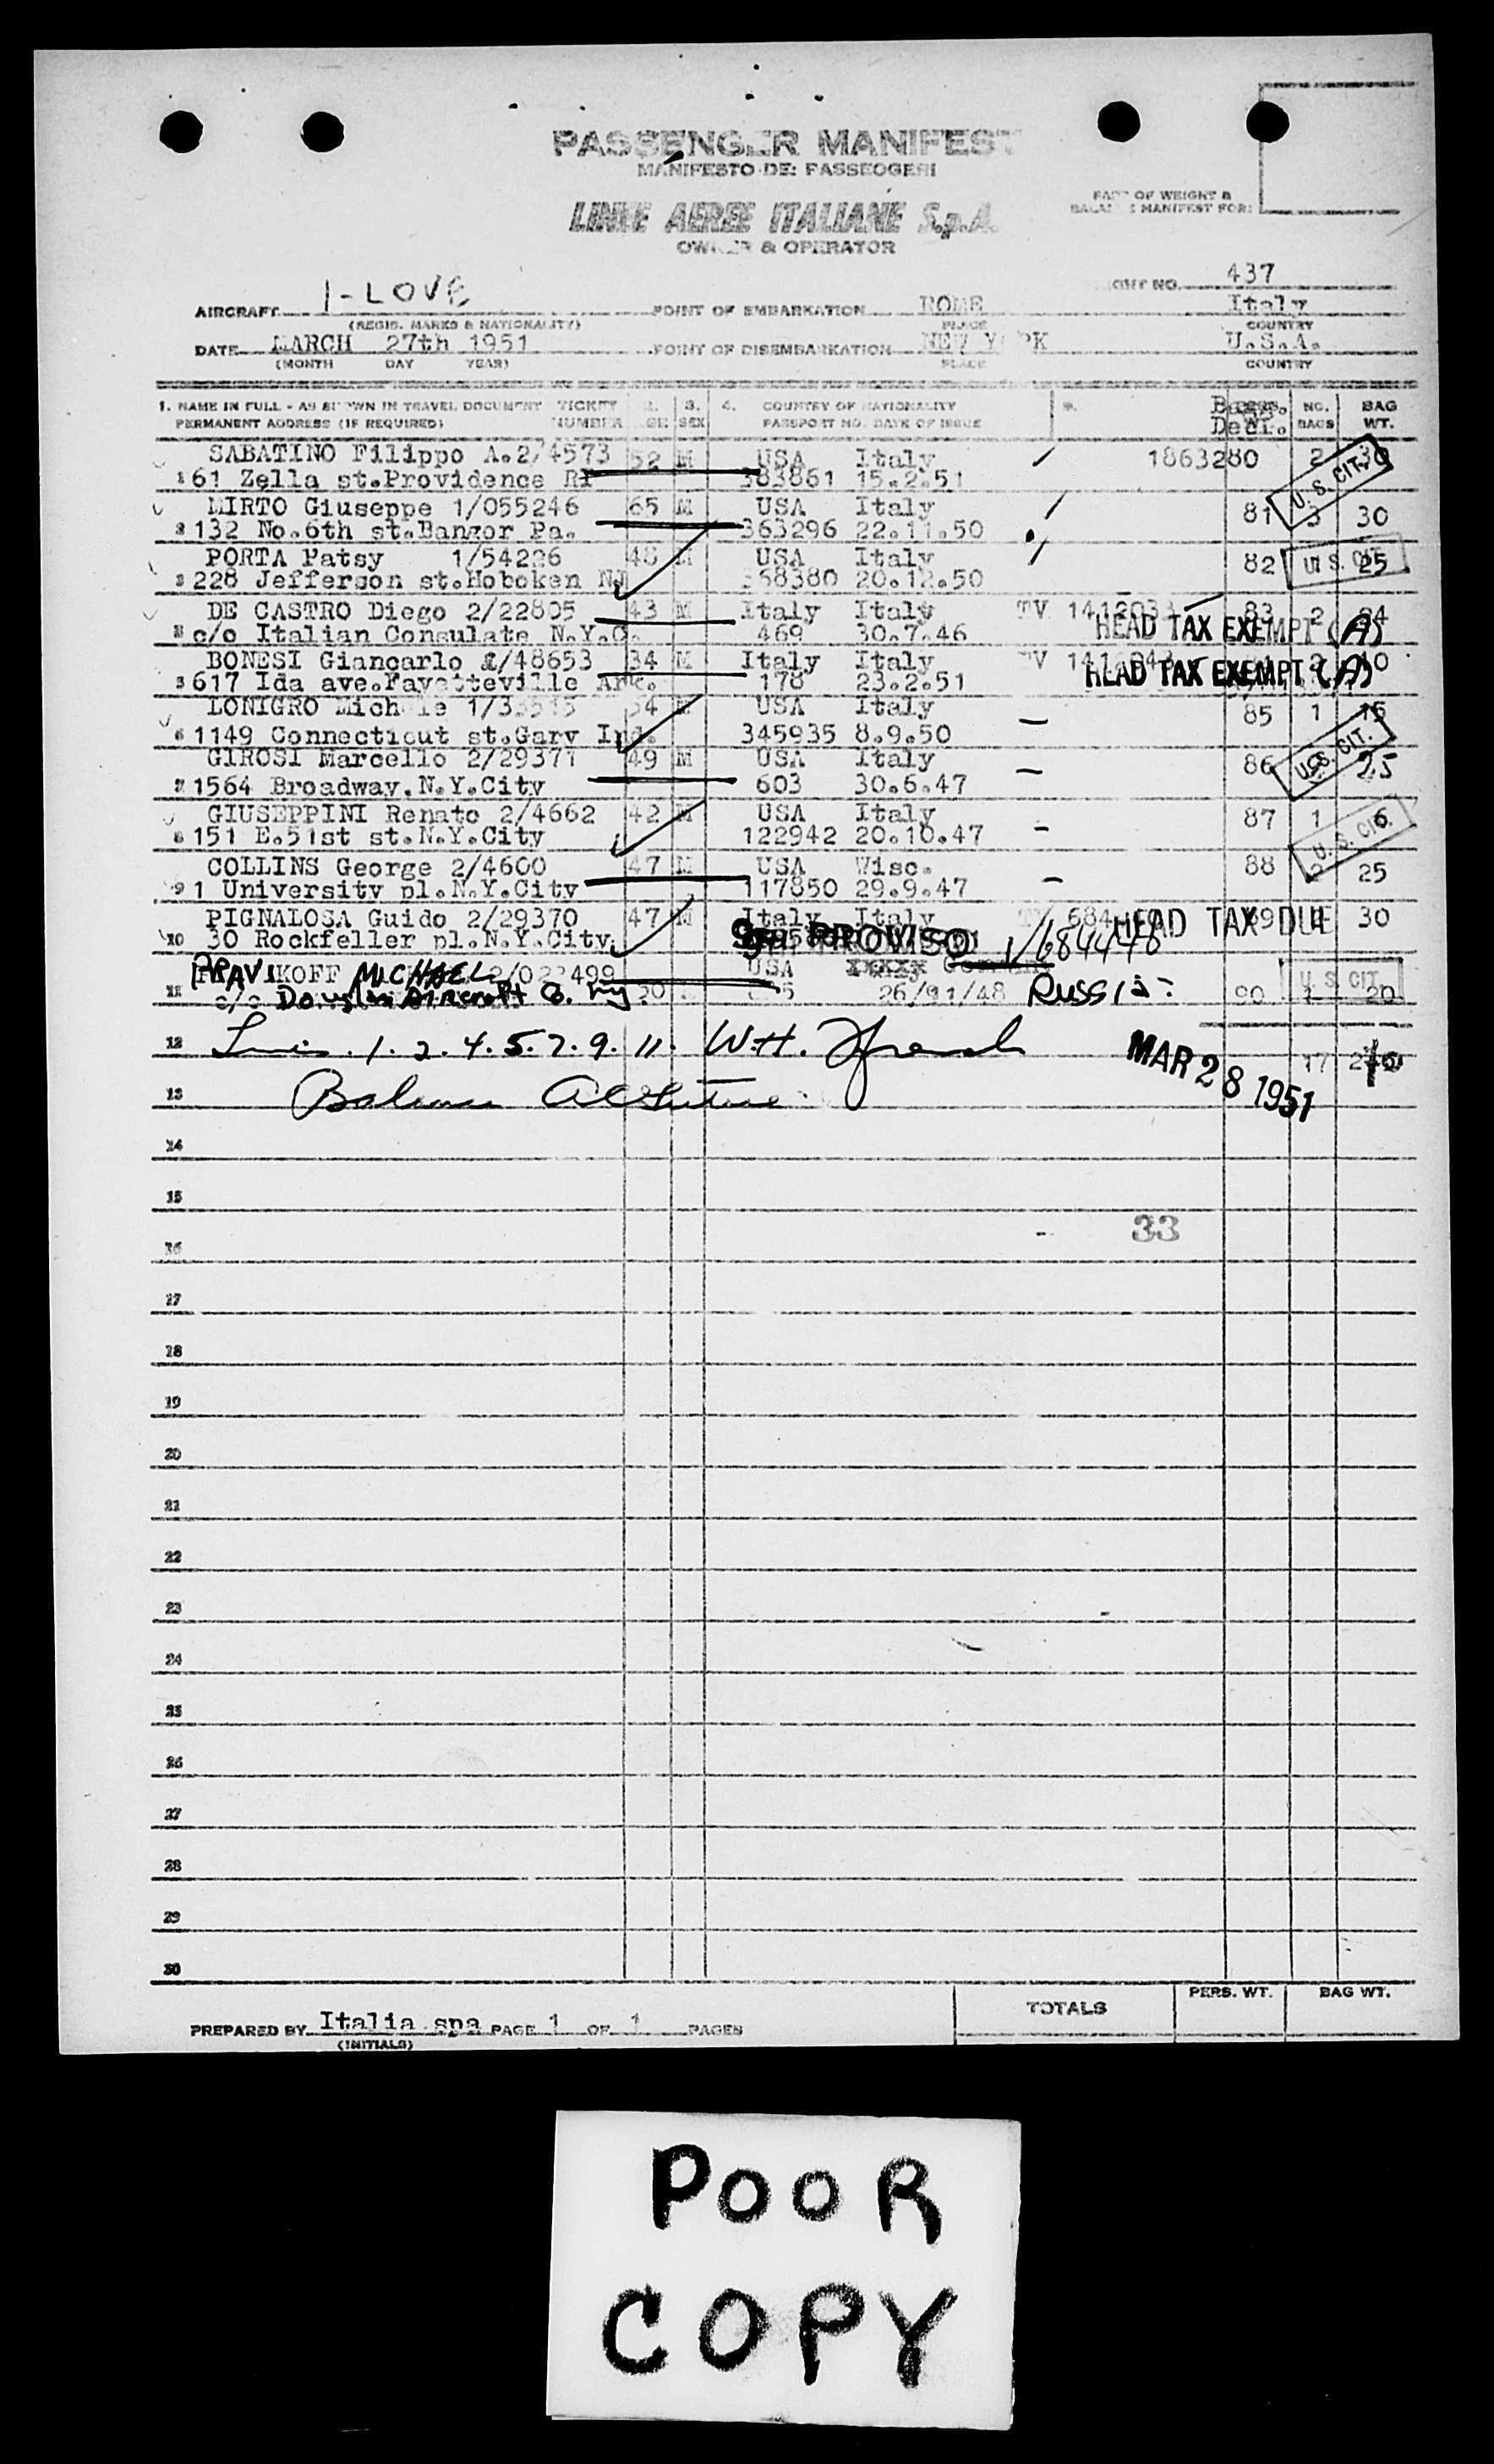 PASSENGER MANIFEST
MANIFESTO DEI PASSEGGERI
PART OF WEIGHT &
BALANCE MANIFEST FOR:
LINEE AEREE ITALIANE S.p.A.
OWNER & OPERATOR
AIRCRAFT I-LOVE POINT OF EMBARKATION ROME NO. 437 Italy
(REGIS. MARKS & NATIONALITY) PLACE COUNTRY
DATE MARCH 27th 1951 POINT OF DISEMBARKATION NEW YORK U.S.A.
(MONTH DAY YEAR) PLACE COUNTRY
1. NAME IN FULL - AS SHOWN IN TRAVEL DOCUMENT TICKET 2. 3. 4. COUNTRY OF NATIONALITY NO. BAG
PERMANENT ADDRESS (IF REQUIRED) NUMBER AGE SEX PASSPORT NO. DATE OF ISSUE Decl. BAGS WT.
SABATINO Filippo A. 2/4573 52 M USA Italy 1863280 2 30
1 61 Zella st. Providence RI 383861 15.2.51 U.S. CIT.
MIRTO Giuseppe 1/055246 65 M USA Italy 81 3 30
2 132 No. 6th st. Bangor Pa. 363296 22.11.50
PORTA Patsy 1/54226 48 M USA Italy 82 1 25 U.S. CIT.
3 228 Jefferson st. Hoboken NJ 58380 20.12.50
DE CASTRO Diego 2/22805 43 M Italy Italy TV 83 2
c/o Italian Consulate N.Y.C. 469 30.7.46 HEAD TAX EXEMPT (A)
BONESI Giancarlo 2/48653 34 M Italy Italy TV
5 617 Ida ave. Fayetteville Ark. 178 23.2.51 HEAD TAX EXEMPT (A)
LONIGRO Michele 54 M USA Italy 85 1 15
6 1149 Connecticut st. Gary Ind. 345935 8.9.50 U.S. CIT.
GIROSI Marcello 2/29371 49 M USA Italy 86 25
7 1564 Broadway. N.Y.City 603 30.6.47
GIUSEPPINI Renato 2/4662 42 M USA Italy 87 1 6
8 151 E.51st st. N.Y.City 122942 20.10.47 U.S. CIT.
COLLINS George 2/4600 47 M USA Wisc. 88 2 25
9 1 University pl. N.Y.City 117850 29.9.47
PIGNALOSA Guido 2/29370 47 M Italy Italy 89 30 HEAD TAX DUE
10 30 Rockfeller pl. N.Y.City 9th PROVISO
PRAVIKOFF MICHAEL USA
11 c/o Douglas Aircraft Co. NY 26/11/48 Russia 90 1 20 U.S. CIT.
12 1. 2. 4. 5. 7. 9. 11. W.H. 17
MAR 28 1951
13 Balance
14
15
33
16
17
18
19
20
21
22
23
24
25
26
27
28
29
30
TOTALS PERS. WT. BAG WT.
PREPARED BY Italia spa PAGE 1 OF 1 PAGES
(INITIALS)
POOR
COPY